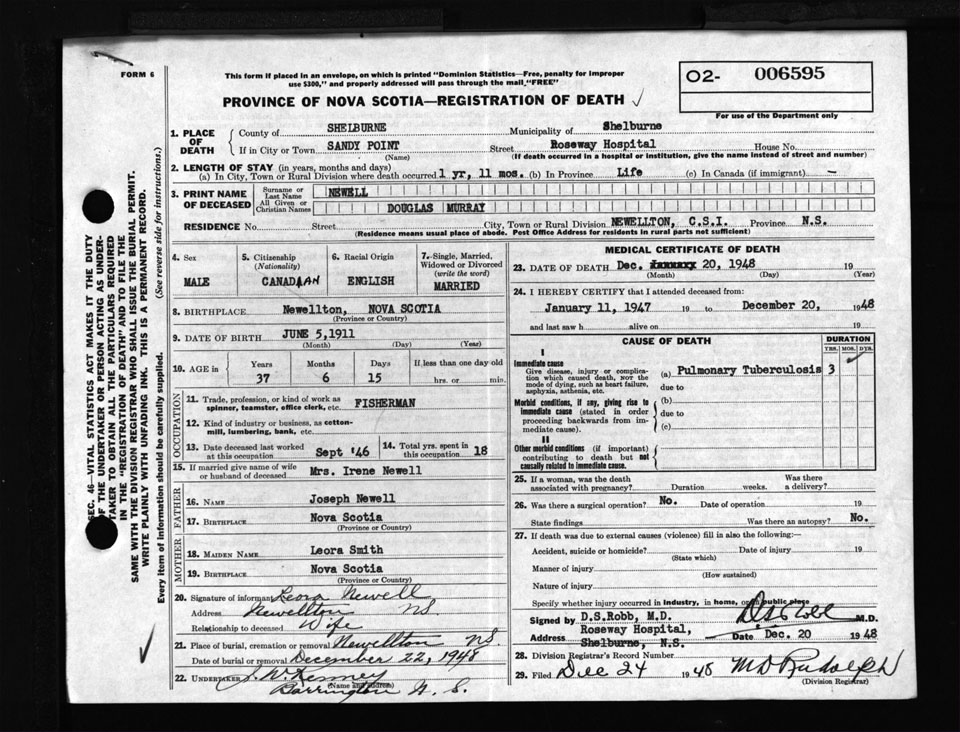 FORM 6
This form if placed in an envelope, on which is printed "Dominion Statistics—Free, penalty for improper
use $300," and properly addressed will pass through the mail "FREE"
O2- 006595
For use of the Department only
PROVINCE OF NOVA SCOTIA—REGISTRATION OF DEATH ✓
1. PLACE OF DEATH
County of SHELBURNE Municipality of Shelburne
If in City or Town SANDY POINT Street Roseway Hospital House No.
(Name) (If death occurred in a hospital or institution, give the name instead of street and number)
2. LENGTH OF STAY (in years, months and days)
(a) In City, Town or Rural Division where death occurred 1 yr, 11 mos. (b) In Province Life (c) In Canada (if immigrant) —
3. PRINT NAME OF DECEASED
Surname or Last Name NEWELL
All Given or Christian Names DOUGLAS MURRAY
RESIDENCE No. Street City, Town or Rural Division NEWELLTON, C.S.I. Province N.S.
(Residence means usual place of abode. Post Office Address for residents in rural parts not sufficient)
4. Sex
MALE
5. Citizenship
(Nationality)
CANADIAN
6. Racial Origin
ENGLISH
7. Single, Married, Widowed or Divorced
(write the word)
MARRIED
8. BIRTHPLACE Newellton, NOVA SCOTIA
(Province or Country)
9. DATE OF BIRTH JUNE 5,1911
(Month) (Day) (Year)
10. AGE in Years Months Days If less than one day old
37 6 15 hrs. or min.
OCCUPATION
11. Trade, profession, or kind of work as
spinner, teamster, office clerk, etc. FISHERMAN
12. Kind of industry or business, as cotton-
mill, lumbering, bank, etc.
13. Date deceased last worked at this occupation Sept '46
14. Total yrs. spent in this occupation 18
15. If married give name of wife
or husband of deceased Mrs. Irene Newell
FATHER
16. NAME Joseph Newell
17. BIRTHPLACE Nova Scotia
(Province or Country)
MOTHER
18. MAIDEN NAME Leora Smith
19. BIRTHPLACE Nova Scotia
(Province or Country)
20. Signature of informant Leora Newell
Address Newellton NS.
Relationship to deceased Wife
21. Place of burial, cremation or removal Newellton NS.
Date of burial or removal December 22, 1948
22. UNDERTAKER J. W. Kenney
(Name and address)
Barrington N. S.
MEDICAL CERTIFICATE OF DEATH
23. DATE OF DEATH Dec. January 20, 1948 19
(Month) (Day) (Year)
24. I HEREBY CERTIFY that I attended deceased from:
January 11, 1947 19 to December 20, 1948
and last saw h alive on 19
CAUSE OF DEATH
DURATION
YRS. MOS. DYS.
I
Immediate cause
Give disease, injury or complica-
tion which caused death, NOT the
mode of dying, such as heart failure,
asphyxia, asthenia, etc.
(a) Pulmonary Tuberculosis 3 ✓
due to
Morbid conditions, if any, giving rise to
immediate cause (stated in order
proceeding backwards from im-
mediate cause).
(b)
due to
(c)
II
Other morbid conditions (if important)
contributing to death but not
causally related to immediate cause.
25. If a woman, was the death
associated with pregnancy? Duration weeks. Was there a delivery?
26. Was there a surgical operation? No. Date of operation 19
State findings Was there an autopsy? No.
27. If death was due to external causes (violence) fill in also the following:—
Accident, suicide or homicide? Date of injury 19
(State which)
Manner of injury
(How sustained)
Nature of injury
Specify whether injury occurred in industry, in home, or in public place
Signed by D.S.Robb, M.D. D.S. Robb M.D.
Address Roseway Hospital, Date Dec. 20 1948
Shelburne, N.S.
28. Division Registrar's Record Number
29. Filed Dec 24 1948 M D Rudolph
(Division Registrar)
SEC. 46—VITAL STATISTICS ACT MAKES IT THE DUTY
OF THE UNDERTAKER OR PERSON ACTING AS UNDER-
TAKER TO OBTAIN ALL THE PARTICULARS REQUIRED
IN THE "REGISTRATION OF DEATH" AND TO FILE THE
SAME WITH THE DIVISION REGISTRAR WHO SHALL ISSUE THE BURIAL PERMIT.
WRITE PLAINLY WITH UNFADING INK. THIS IS A PERMANENT RECORD.
Every item of information should be carefully supplied. (See reverse side for instructions.)